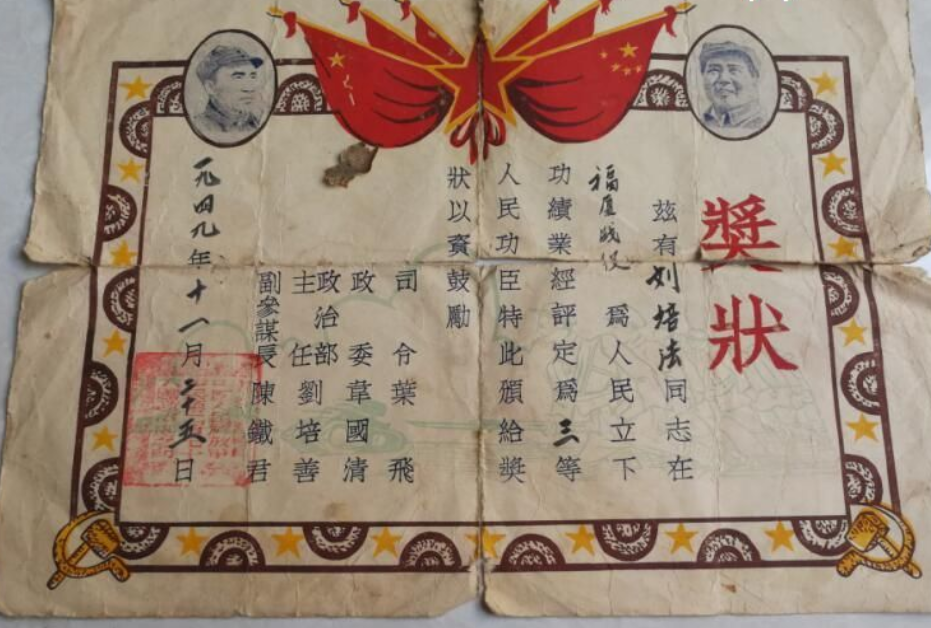 獎狀
茲有刘培法同志在
福厦战役 爲人民立下
功績業經評定爲三等
人民功臣特此頒給獎
狀以資鼓勵
司令葉飛
政委韋國清
政治部主任劉培善
副參謀長陳鐵君
一九四九年十一月二十五日